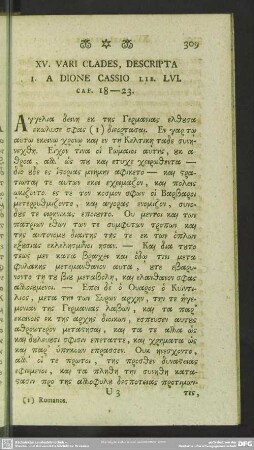 309
XV. VARI CLADES, DESCRIPTA
I. A DIONE CASSIO LIB. LVI.
CAP. 18—23.
Αγγελια δεινη εκ της Γερμανιας ελθουσα
εκωλυσε σφας (1) διεορτασαι. Εν γαρ τω
αυτω εκεινω χρονω και εν τη Κελτικη ταδε συνη-
νεχθη. Ειχον τινα οι Ρωμαιοι αυτης, ουκ α-
θροα, αλλ' ως πη και ετυχε χειρωθεντα —
διο ουδε ες ιστοριας μνημην αφικετο — και στρα-
τιωται τε αυτων εκει εχειμαζον, και πολεις
ωκιζοντο. ες τε τον κοσμον σφων οι Βαρβαροι
μετερρυθμιζοντο, και αγορας ενομιζον, συνο-
δους τε ειρηνικας εποιουντο. Ου μεντοι και των
πατριων ηθων των τε συμφυτων τροπων και
της αυτονομου διαιτης της τε εκ των οπλων
εξουσιας εκλελησμενοι ησαν. — Και δια τουτο
τεως μεν κατα βραχυ και οδω τινι μετα
φυλακης μετεμανθανον αυτα, ουτε εβαρυ-
νοντο τη του βιου μεταβολη, και ελανθανον σφας
αλλοιουμενοι. — Επει δε ο Ουαρος ο Κυιντι-
λιος, μετα την των Συρων αρχην, την τε ηγε-
μονιαν της Γερμανιας λαβων, και τα παρ'
εκεινοις εκ της αρχης διοικων, εσπευσεν αυτους
αθροωτερον μεταστησαι, και τα τε αλλα ως
και δουλευουσι σφισιν επεταττε, και χρηματα ως
και παρ' υπηκοων επρασσεν. Ουκ ηνεσχοντο,
αλλ' οι τε πρωτοι, της προσθεν δυναστειας
εφιεμενοι, και τα πληθη την συνηθη κατα-
στασιν προ της αλλοφυλου δεσποτειας προτιμων-
U 3
τες,
(1) Romanos.